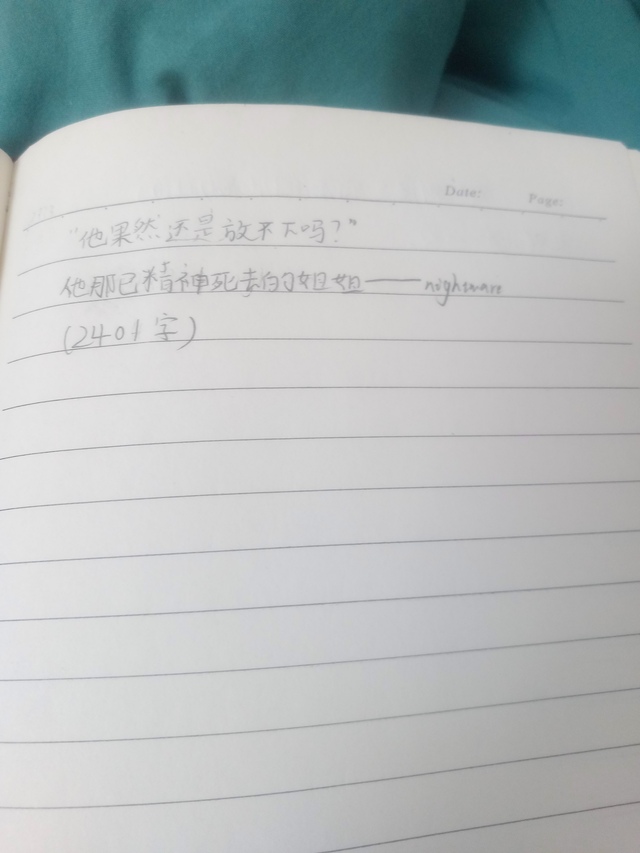 Date: Page:
"他果然还是放不下吗?"
他那已精神死去的姐姐——nighmare
(2401字)